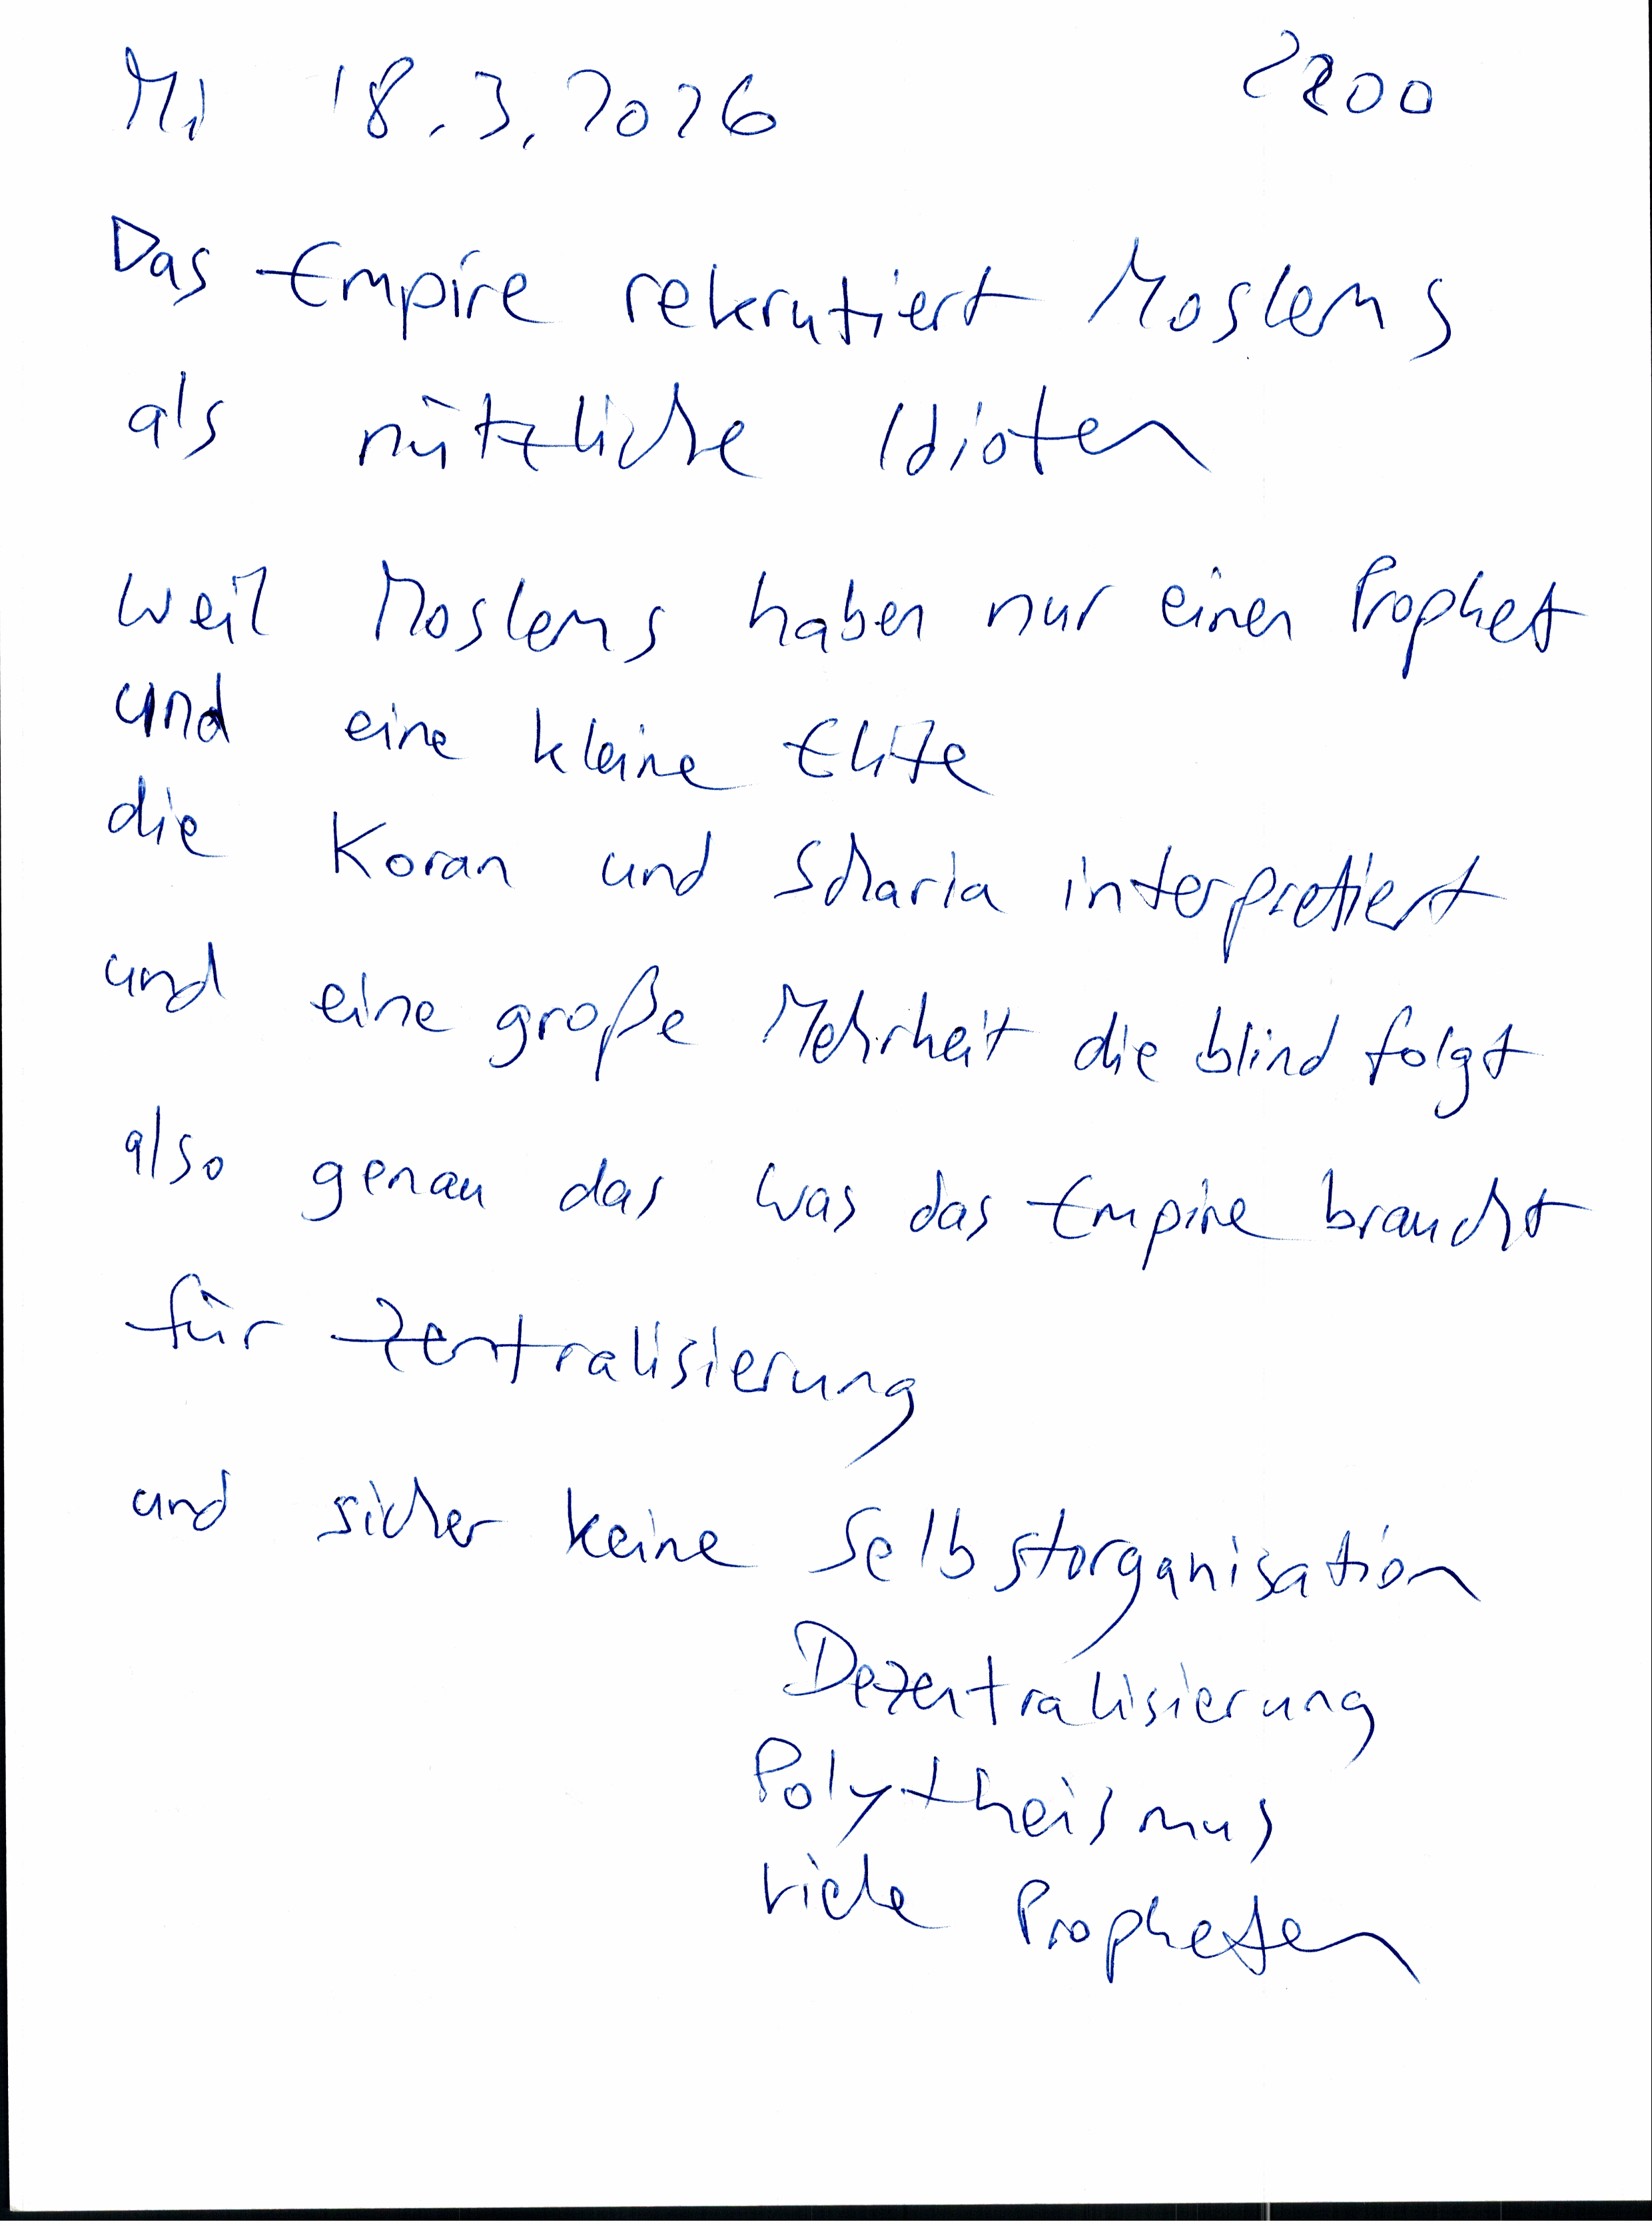 Mi 18.3.2026 2200
Das Empire rekrutiert Moslems
als nützliche Idioten
weil Moslems haben nur einen Prophet
und eine kleine Elite
die Koran und Scharia interpretiert
und eine große Mehrheit die blind folgt
also genau das was das Empire braucht
für Zentralisierung
und sicher keine Selbstorganisation
Dezentralisierung
Polytheismus
viele Propheten